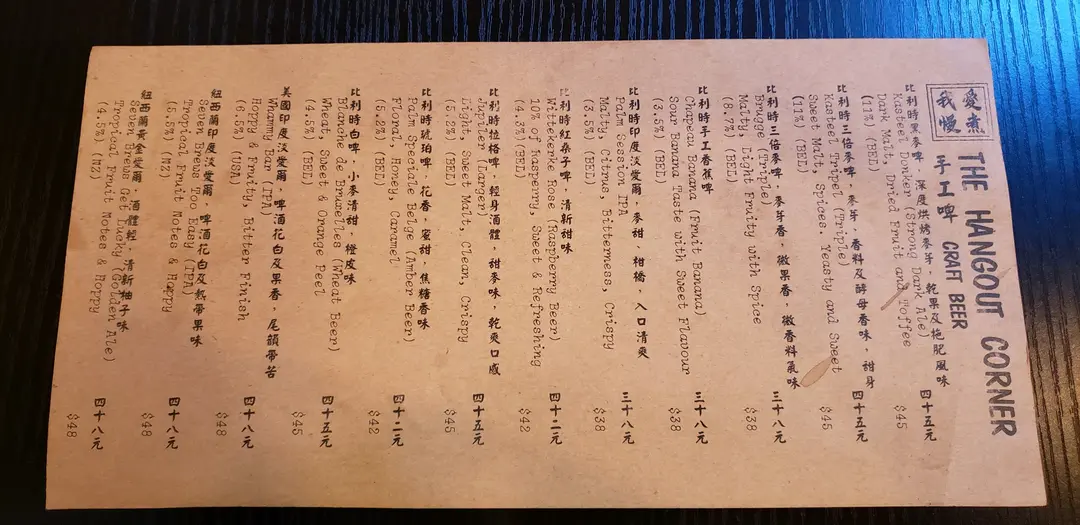 我愛
慢煮
THE HANGOUT CORNER
手工啤 CRAFT BEER
比利時黑麥啤，深度烘烤麥芽，乾果及拖肥風味 四十五元
Kasteel Donker (Strong Dark Ale)
Dark Malt, Dried Fruit and Toffee $45
(11%) (BEL)
比利時三倍麥啤，麥芽，香料及酵母香味，甜身 四十五元
Kasteel Tripel (Triple)
Sweet Malt, Spices. Yeasty and Sweet $45
(11%) (BEL)
比利時三倍麥啤，麥芽香，微果香，微香料氣味 三十八元
Brugge (Triple)
Malty, Light Fruity with Spice $38
(8.7%) (BEL)
比利時手工香蕉啤 三十八元
Chapeau Banana (Fruit Banana)
Sour Banana Taste with Sweet Flavour $38
(3.5%) (BEL)
比利時印度淡愛爾，麥甜，柑橘，入口清爽 三十八元
Palm Session IPA
Malty, Citrus, Bitterness, Crispy $38
(3.5%) (BEL)
比利時紅桑子啤，清新甜味 四十二元
Wittekerke Rose (Raspberry Beer)
10% of Rasperry, Sweet & Refreshing $42
(4.3%) (BEL)
比利時拉格啤，輕身酒體，甜麥味，乾爽口感 四十五元
Jupiler (Larger)
Light, Sweet Malt, Clean, Crispy $45
(5.2%) (BEL)
比利時琥珀啤，花香，蜜甜，焦糖香味 四十二元
Palm Speciale Belge (Amber Beer)
Floral, Honey, Caramel $42
(5.2%) (BEL)
比利時白啤，小麥清甜，橙皮味 四十五元
Blanche de Bruxelles (Wheat Beer)
Wheat, Sweet & Orange Peel $45
(4.5%) (BEL)
美國印度淡愛爾，啤酒花白及果香，尾韻帶苦 四十八元
Whammy Bar (IPA)
Hoppy & Fruity, Bitter Finish $48
(6.5%) (USA)
紐西蘭印度淡愛爾，啤酒花白及熱帶果味 四十八元
Seven Brews Too Easy (IPA)
Tropical Fruit Notes & Hoppy $48
(5.5%) (NZ)
紐西蘭黃金愛爾，酒體輕，清新柚子味 四十八元
Seven Brews Get Lucky (Golden Ale)
Tropical Fruit Notes & Hoppy $48
(4.5%) (NZ)